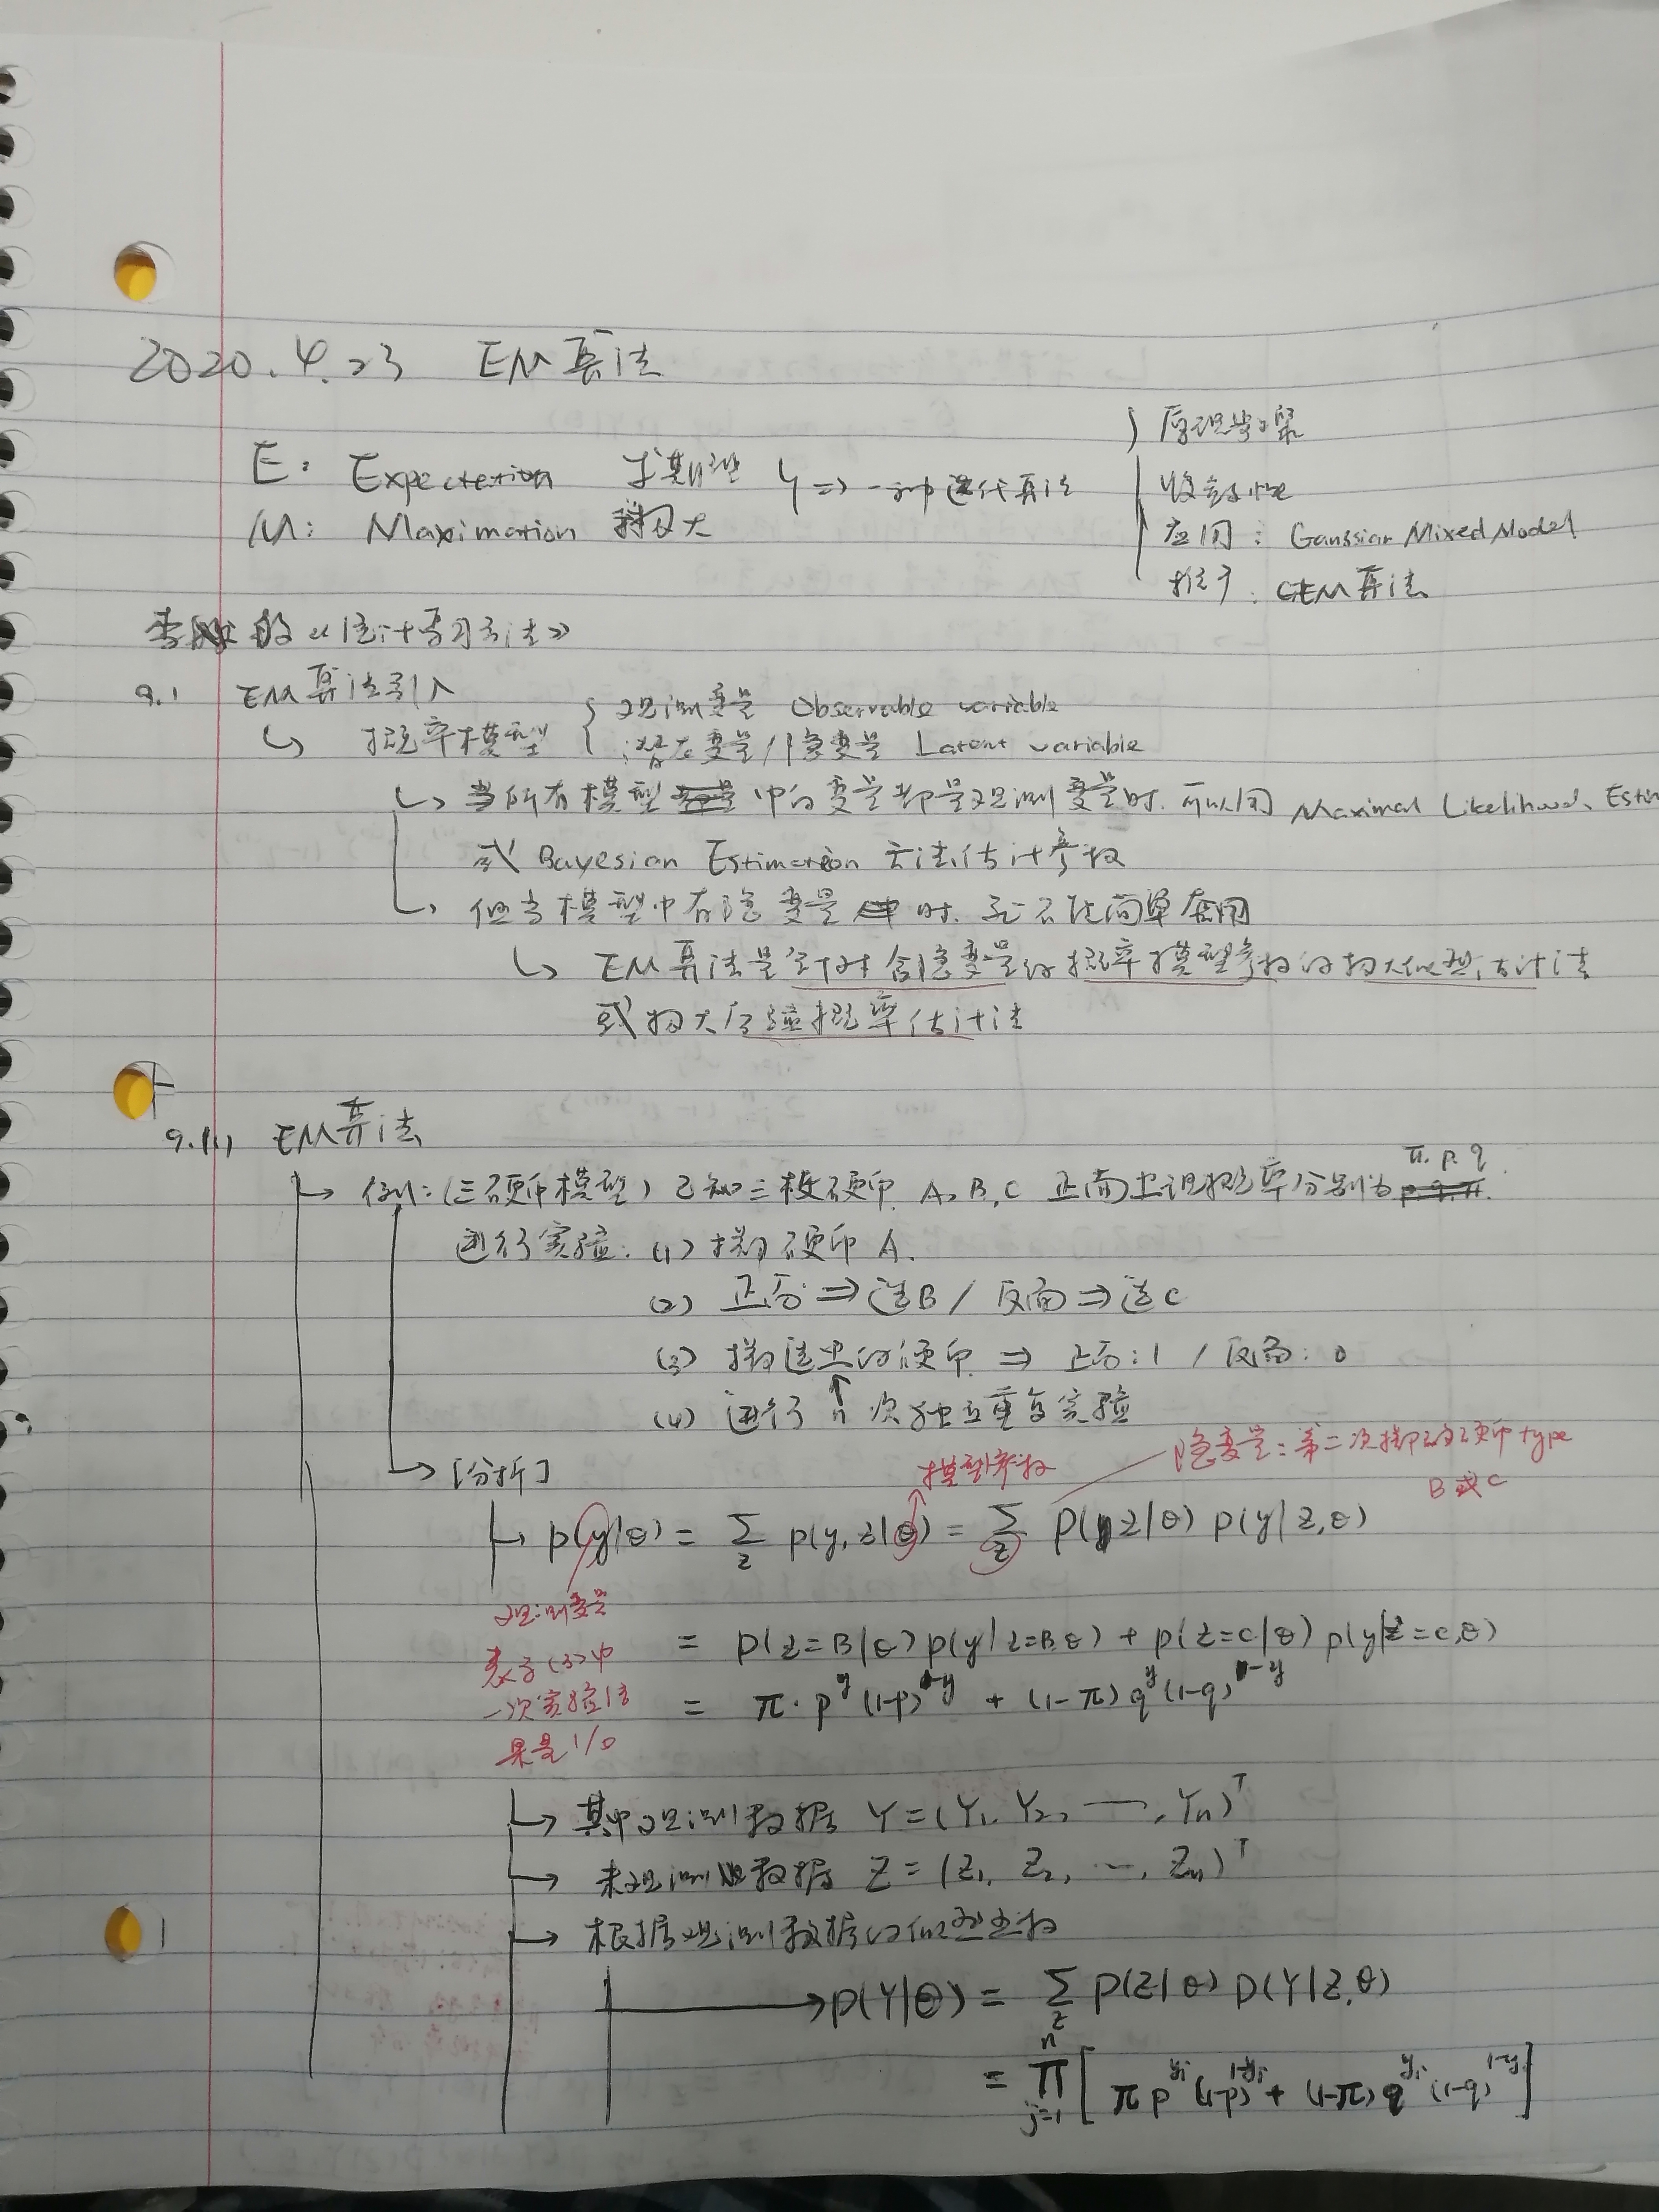 2020.4.23 EM算法
E: Expectation 求期望
M: Maximation 求极大
} => 一种迭代算法
原理步骤
收敛性
应用: Gaussian Mixed Model
推广: GEM算法
李航的《统计学习方法》
9.1 EM算法引入
↳ 概率模型 { 观测变量 Observable variable
潜在变量/隐变量 Latent variable
↳ 当所有模型中的变量都是观测变量时. 可以用 Maximal Likelihood Estim
或 Bayesian Estimation 方法估计参数
↳ 但当模型中有隐变量时. 就不能简单套用
↳ EM算法是针对含隐变量的概率模型参数的极大似然估计法
或极大后验概率估计法
9.1.1 EM算法
π. p. q
→ 例: (三硬币模型) 已知三枚硬币. A, B, C 正面出现概率分别为 p. q. π.
进行实验: (1) 掷硬币 A.
(2) 正面 ⇒ 选B / 反面 ⇒ 选C
(3) 掷选出的硬币 ⇒ 正面: 1 / 反面: 0
(4) 进行 n 次独立重复实验
隐变量: 第二次掷的硬币type
B或C
模型参数
→ [分析]
→ p(y|θ) = Σ_z p(y, z|θ) = Σ_z p(z|θ) p(y|z,θ)
观测变量
表示(3)中
一次实验结
果是 1/0
= p(z=B|θ) p(y|z=B,θ) + p(z=C|θ) p(y|z=C,θ)
= π · p^y (1-p)^{1-y} + (1-π) q^y (1-q)^{1-y}
→ 其中观测数据 Y = (Y1, Y2, —, Yn)^T
→ 未观测数据 Z = (Z1, Z2, ..., Zn)^T
→ 根据观测数据的似然函数
→ p(Y|θ) = Σ_z p(Z|θ) p(Y|Z,θ)
= Π_{j=1}^{n} [ π p^{yi} (1-p)^{1-yi} + (1-π) q^{yi} (1-q)^{1-yi} ]